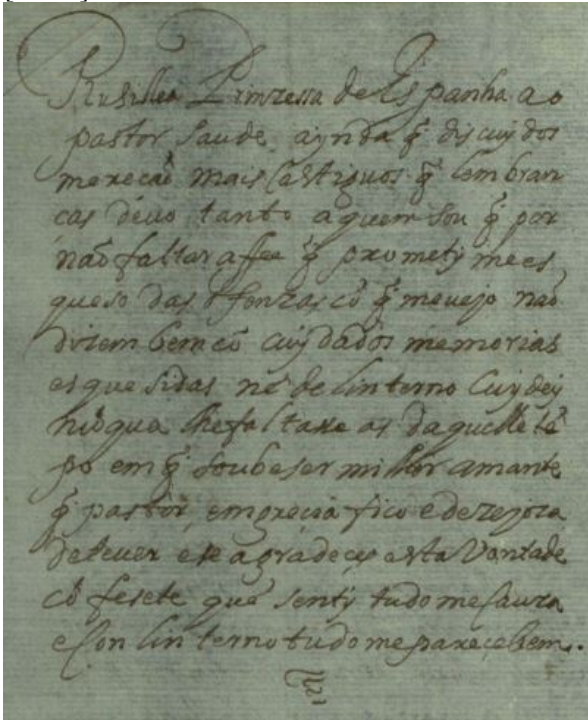 Princessa de Espanha ao
pastor saude aynda q̃ discuydos
mereçaõ mais castiguos q̃ lembran
cas devo tanto a quem sou q̃ por
naõ faltar a fee q̃ promety me es
queso das ofenzas cõ q̃ me vejo naõ
dizem bem cõ cuydados memorias
esquesidas nẽ de linterno cuydey
nũqua lhe faltase as daquelle tẽ
po em q̃ soube ser milhor amante
q̃ pastor, em grecia fico e dezejoza
de te ver e se agradeçes esta vontade
cõ que senty tudo me cauza
e con linterno tudo me pareçe bem.